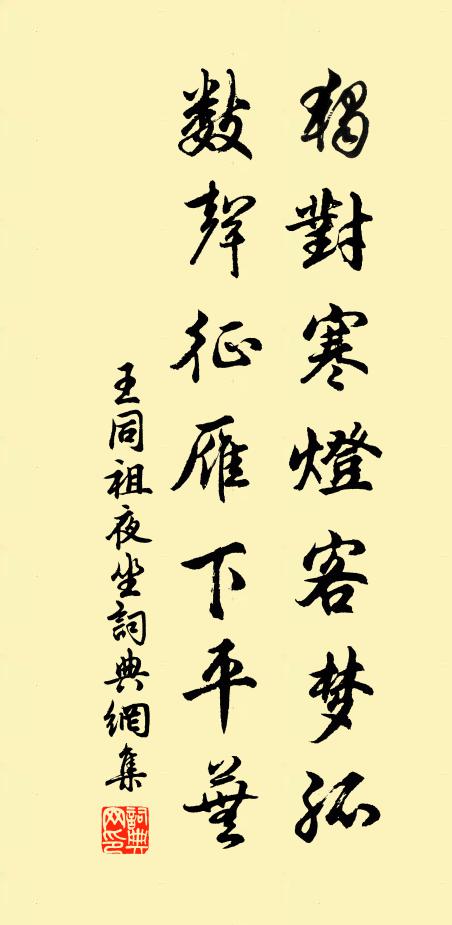 獨對寒燈客梦孤
數聲征雁下平蕪
王同祖夜坐詞典網集
詞典网印